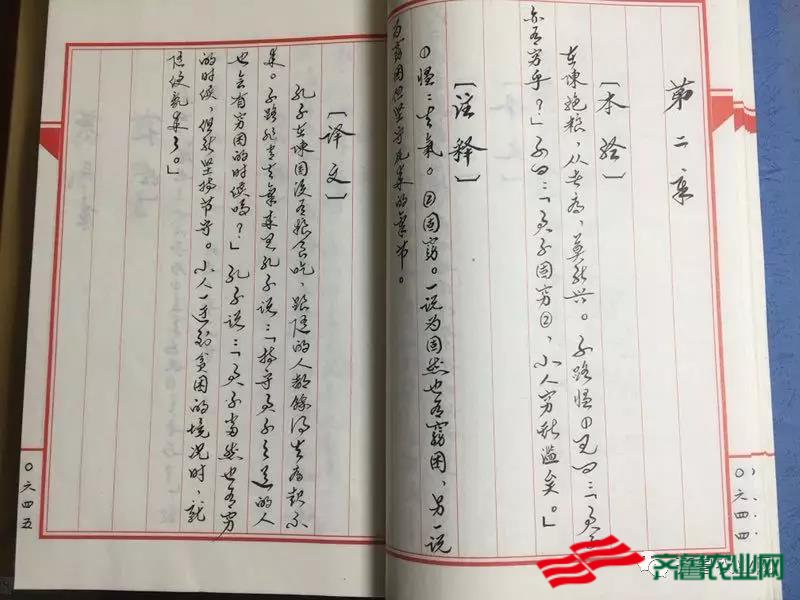 第二章
〔本经〕
在陳絶粮，从者病，莫能兴。子路愠①见曰：「君子
亦有穷乎？」子曰：「君子固穷②，小人穷斯滥矣。」
〔註釋〕
①愠：生氣。②固窮。一说为固然也有窮困，另一说
为窮困但坚守 的氣节。
〇六四四
〔译文〕
孔子在陳国没有粮食吃，跟随的人都餓得生病起不
来。子路 生氣来见孔子说：「持守君子之道的人
也会有穷困的时候吗？」孔子说：「君子当然也有穷
的时候，但能坚持节守。小人一遇到贫困的境况时，就
随便乱来了。」
〇六四五
齐鲁农业网